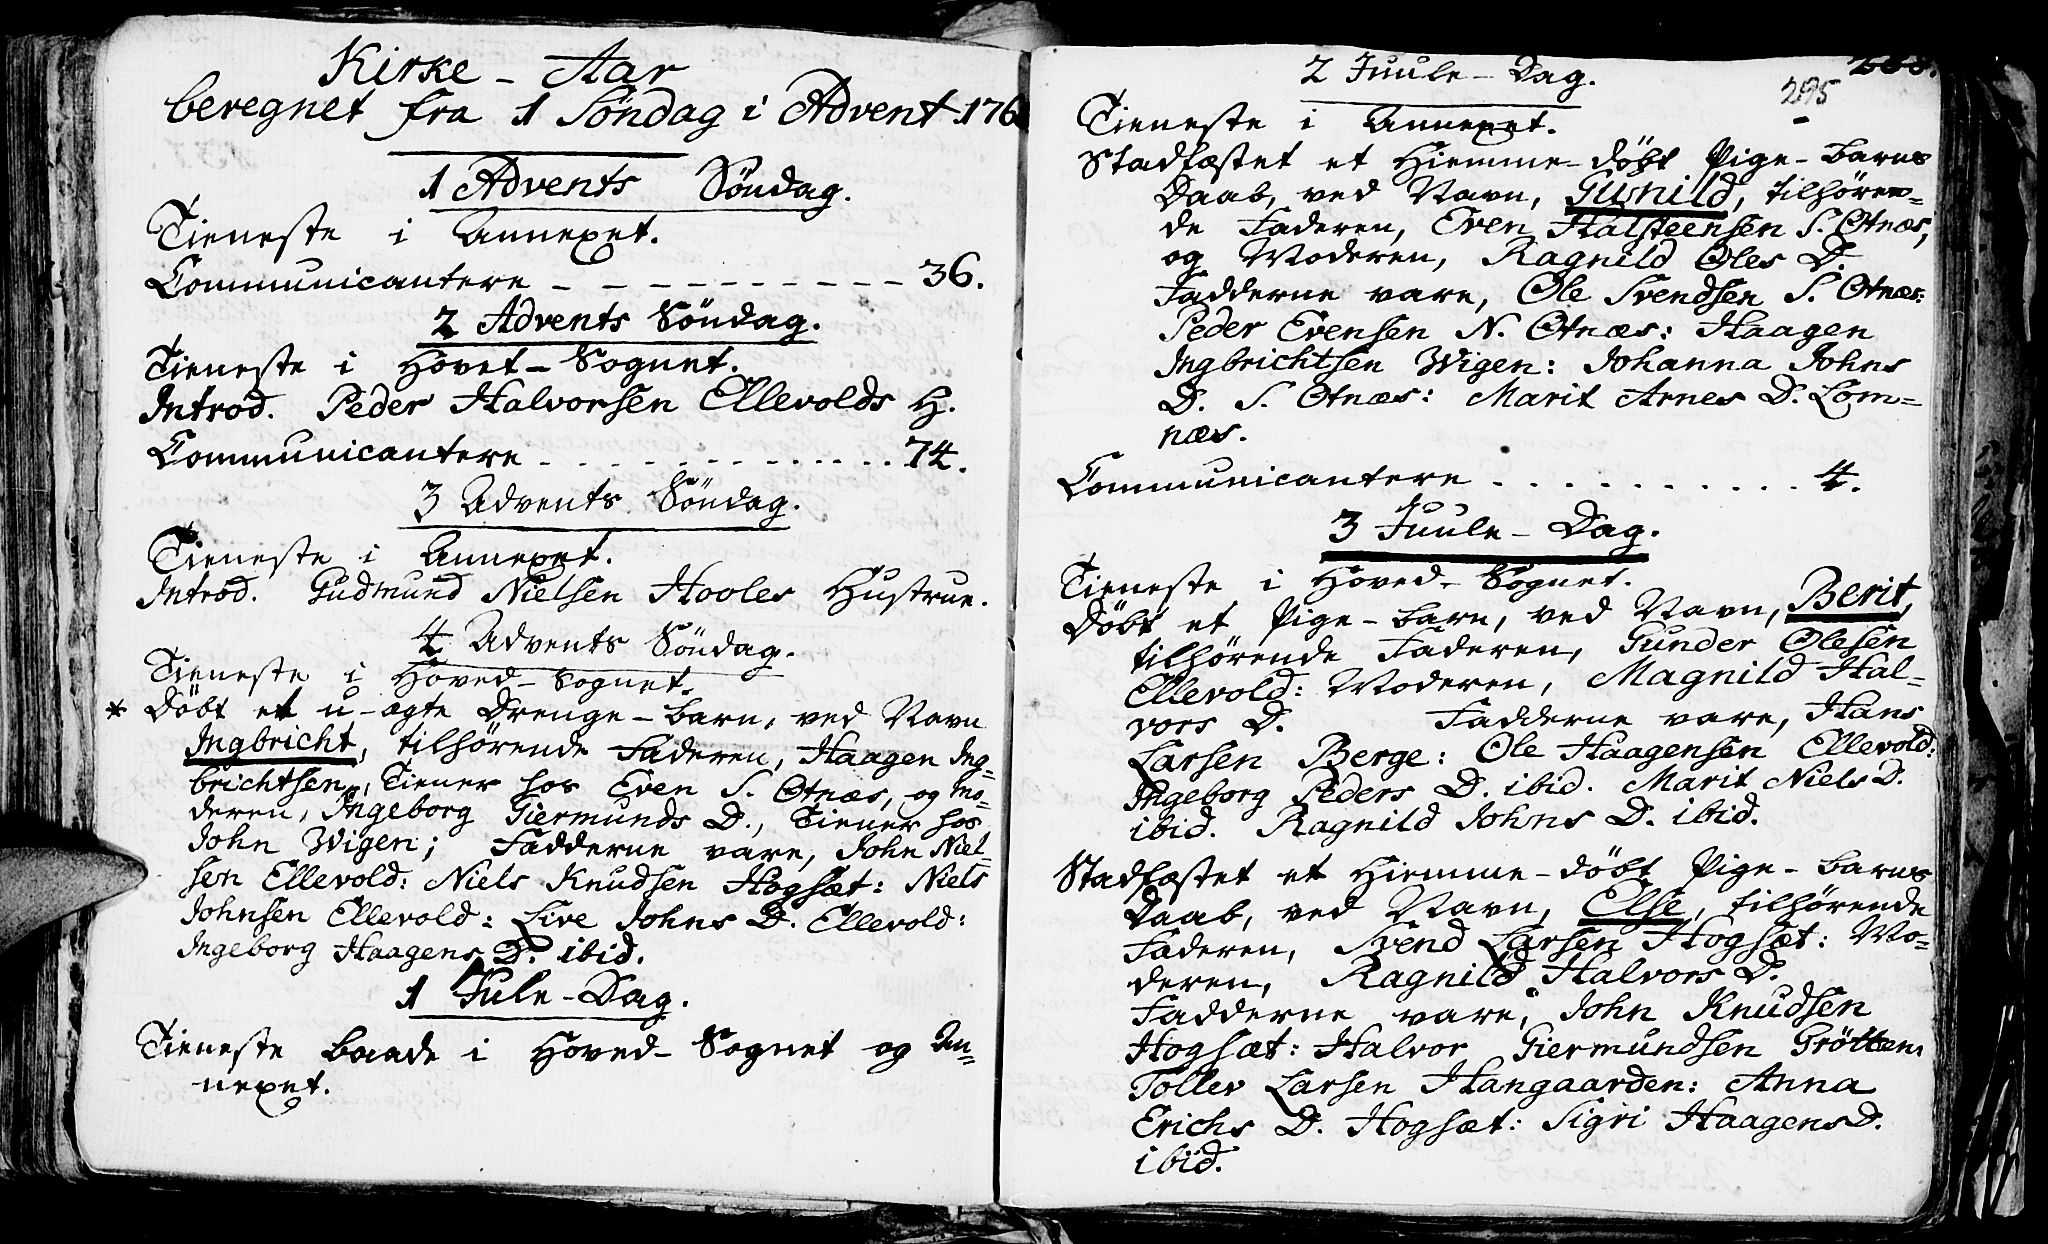 Kirke - Aar
beregnet fra 1 Söndag i Advent 176
1 Advents Söndag.
Tieneste i Annexet.
Communicantere - - - - - - - - - - 36.
2 Advents Söndag.
Tieneste i Hovet-Sognet.
Introd. Peder Halvorsen Ellevolds H.
Communicantere - . . . . . . . . . . . . 74.
3 Advents Söndag.
Tieneste i Annexet.
Introd. Gudmund Nielsen Hooles Hustrue.
4 Advents Söndag.
Tieneste i Hoved-Sognet.
* Döbt et u-ægte Drenge-barn, ved Navn
Ingbricht, tilhørende Faderen, Haagen Ing=
brichtsen, Tiener hos Even S. Otnæs, og Mo=
deren, Ingeborg Giermunds D., Tiener hos
John Wigen; Fadderne vare, John Niel=
sen Ellevold: Niels Knudsen Hogsæt: Niels
Johnsen Ellevold: Live Johns D. Ellevold:
Ingeborg Haagens D. ibid.
1 Jule-Dag.
Tieneste baade i Hoved-Sognet og An=
nexet.
295
2 Juule-Dag.
Tieneste i Annexet.
Stadfæstet et Hiemme-döbt Pige-barns
Daab, ved Navn, Gunild, tilhören=
de Faderen, Even Halsteensen S. Otnæs,
og Moderen, Ragnild Oles D.
Fadderne vare, Ole Svendsen S. Otnæs:
Peder Evensen N. Otnæs: Haagen
Ingbrichtsen Wigen: Johanna Johns
D. S. Otnæs: Marit Arnes D. Lom=
næs.
Communicantere . . . . . . . . . . . 4.
3 Juule-Dag.
Tieneste i Hoved-Sognet.
Döbt et Pige-barn, ved Navn, Berit,
tilhørende Faderen, Gunder Olesen
Ellevold: Moderen, Magnild Hal=
vors D. Fadderne vare, Hans
Larsen Berge: Ole Haagensen Ellevold:
Ingeborg Peders D. ibid. Marit Niels D.
ibid. Ragnild Johns D. ibid.
Stadfæstet et Hiemme-döbt Pige-barns
Daab, ved Navn, Else, tilhørende
Faderen, Svend Larsen Hogsæt: Mo=
deren, Ragnild Halvors D.
Fadderne vare, John Knudsen
Hogsæt: Halvor Giermundsen Grötten:
Toller Larsen Hangaarden: Anna
Erichs D. Hogsæt: Sigri Haagens D.
ibid.